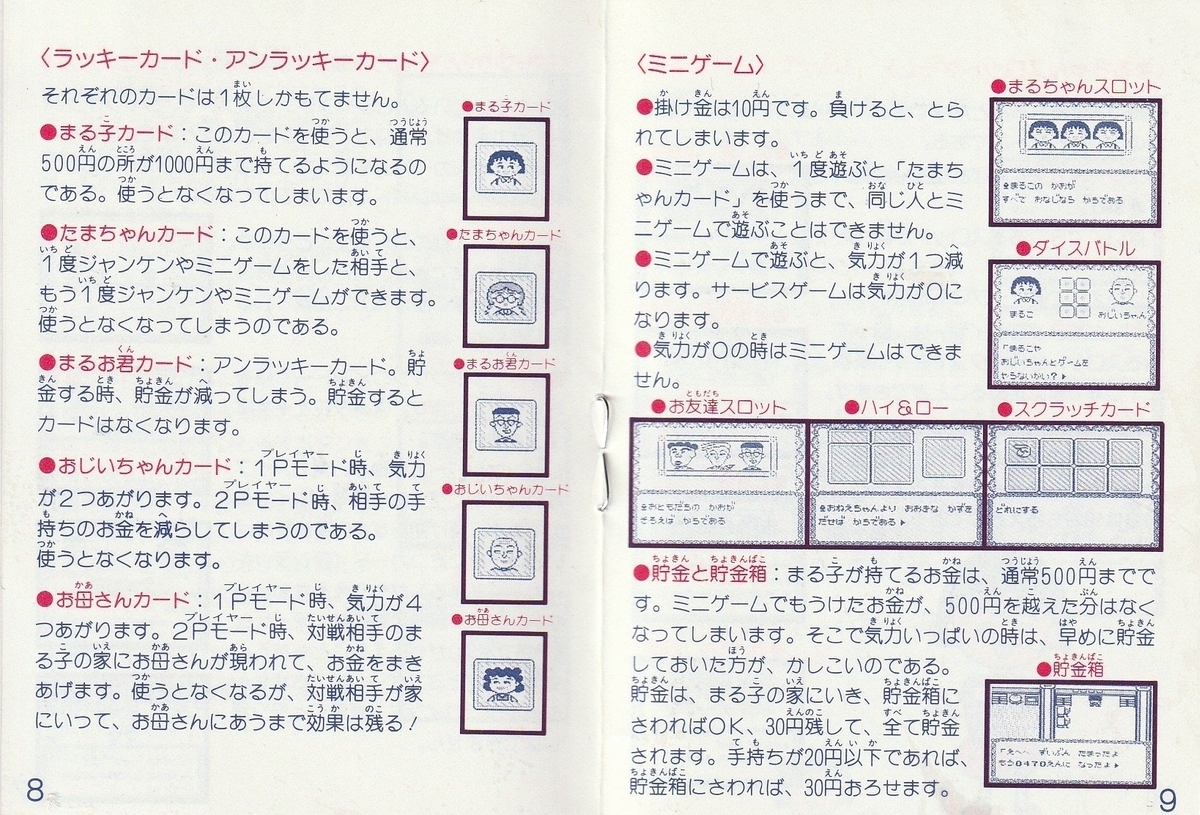 〈ラッキーカード・アンラッキーカード〉
それぞれのカードは1枚しかもてません。
●まる子カード：このカードを使うと、通常
500円の所が1000円まで持てるようになるの
である。使うとなくなってしまいます。
●たまちゃんカード：このカードを使うと、
1度ジャンケンやミニゲームをした相手と、
もう1度ジャンケンやミニゲームができます。
使うとなくなってしまうのである。
●まるお君カード：アンラッキーカード。貯
金する時、貯金が減ってしまう。貯金すると
カードはなくなります。
●おじいちゃんカード：1Pモード時、気力
が2つあがります。2Pモード時、相手の手
持ちのお金を減らしてしまうのである。
使うとなくなります。
●お母さんカード：1Pモード時、気力が4
つあがります。2Pモード時、対戦相手のま
る子の家にお母さんが現われて、お金をまき
あげます。使うとなくなるが、対戦相手が家
にいって、お母さんにあうまで効果は残る！
●まる子カード
●たまちゃんカード
●まるお君カード
●おじいちゃんカード
●お母さんカード
8
〈ミニゲーム〉
●掛け金は10円です。負けると、とら
れてしまいます。
●ミニゲームは、1度遊ぶと「たまち
ゃんカード」を使うまで、同じ人とミ
ニゲームで遊ぶことはできません。
●ミニゲームで遊ぶと、気力が1つ減
ります。サービスゲームは気力が0に
なります。
●気力が0の時はミニゲームはできま
せん。
●まるちゃんスロット
まるこの かおが
すべて おなじなら かちである
●ダイスバトル
まるこ おじいちゃん
「まるこや
おじいちゃんとゲームを
やらないかい？
●お友達スロット
おともだちの かおが
そろえば かちである
●ハイ＆ロー
おねえちゃんより おおきな かずを
だせば かちである
●スクラッチカード
どれにする
●貯金と貯金箱：まる子が持てるお金は、通常500円までで
す。ミニゲームでもうけたお金が、500円を越えた分はなく
なってしまいます。そこで気力いっぱいの時は、早めに貯金
しておいた方が、かしこいのである。
貯金は、まる子の家にいき、貯金箱に
さわればOK、30円残して、全て貯金
されます。手持ちが20円以下であれば、
貯金箱にさわれば、30円おろせます。
●貯金箱
「えへへ ずいぶん たまったよ
もう0470えんに なったよ
9